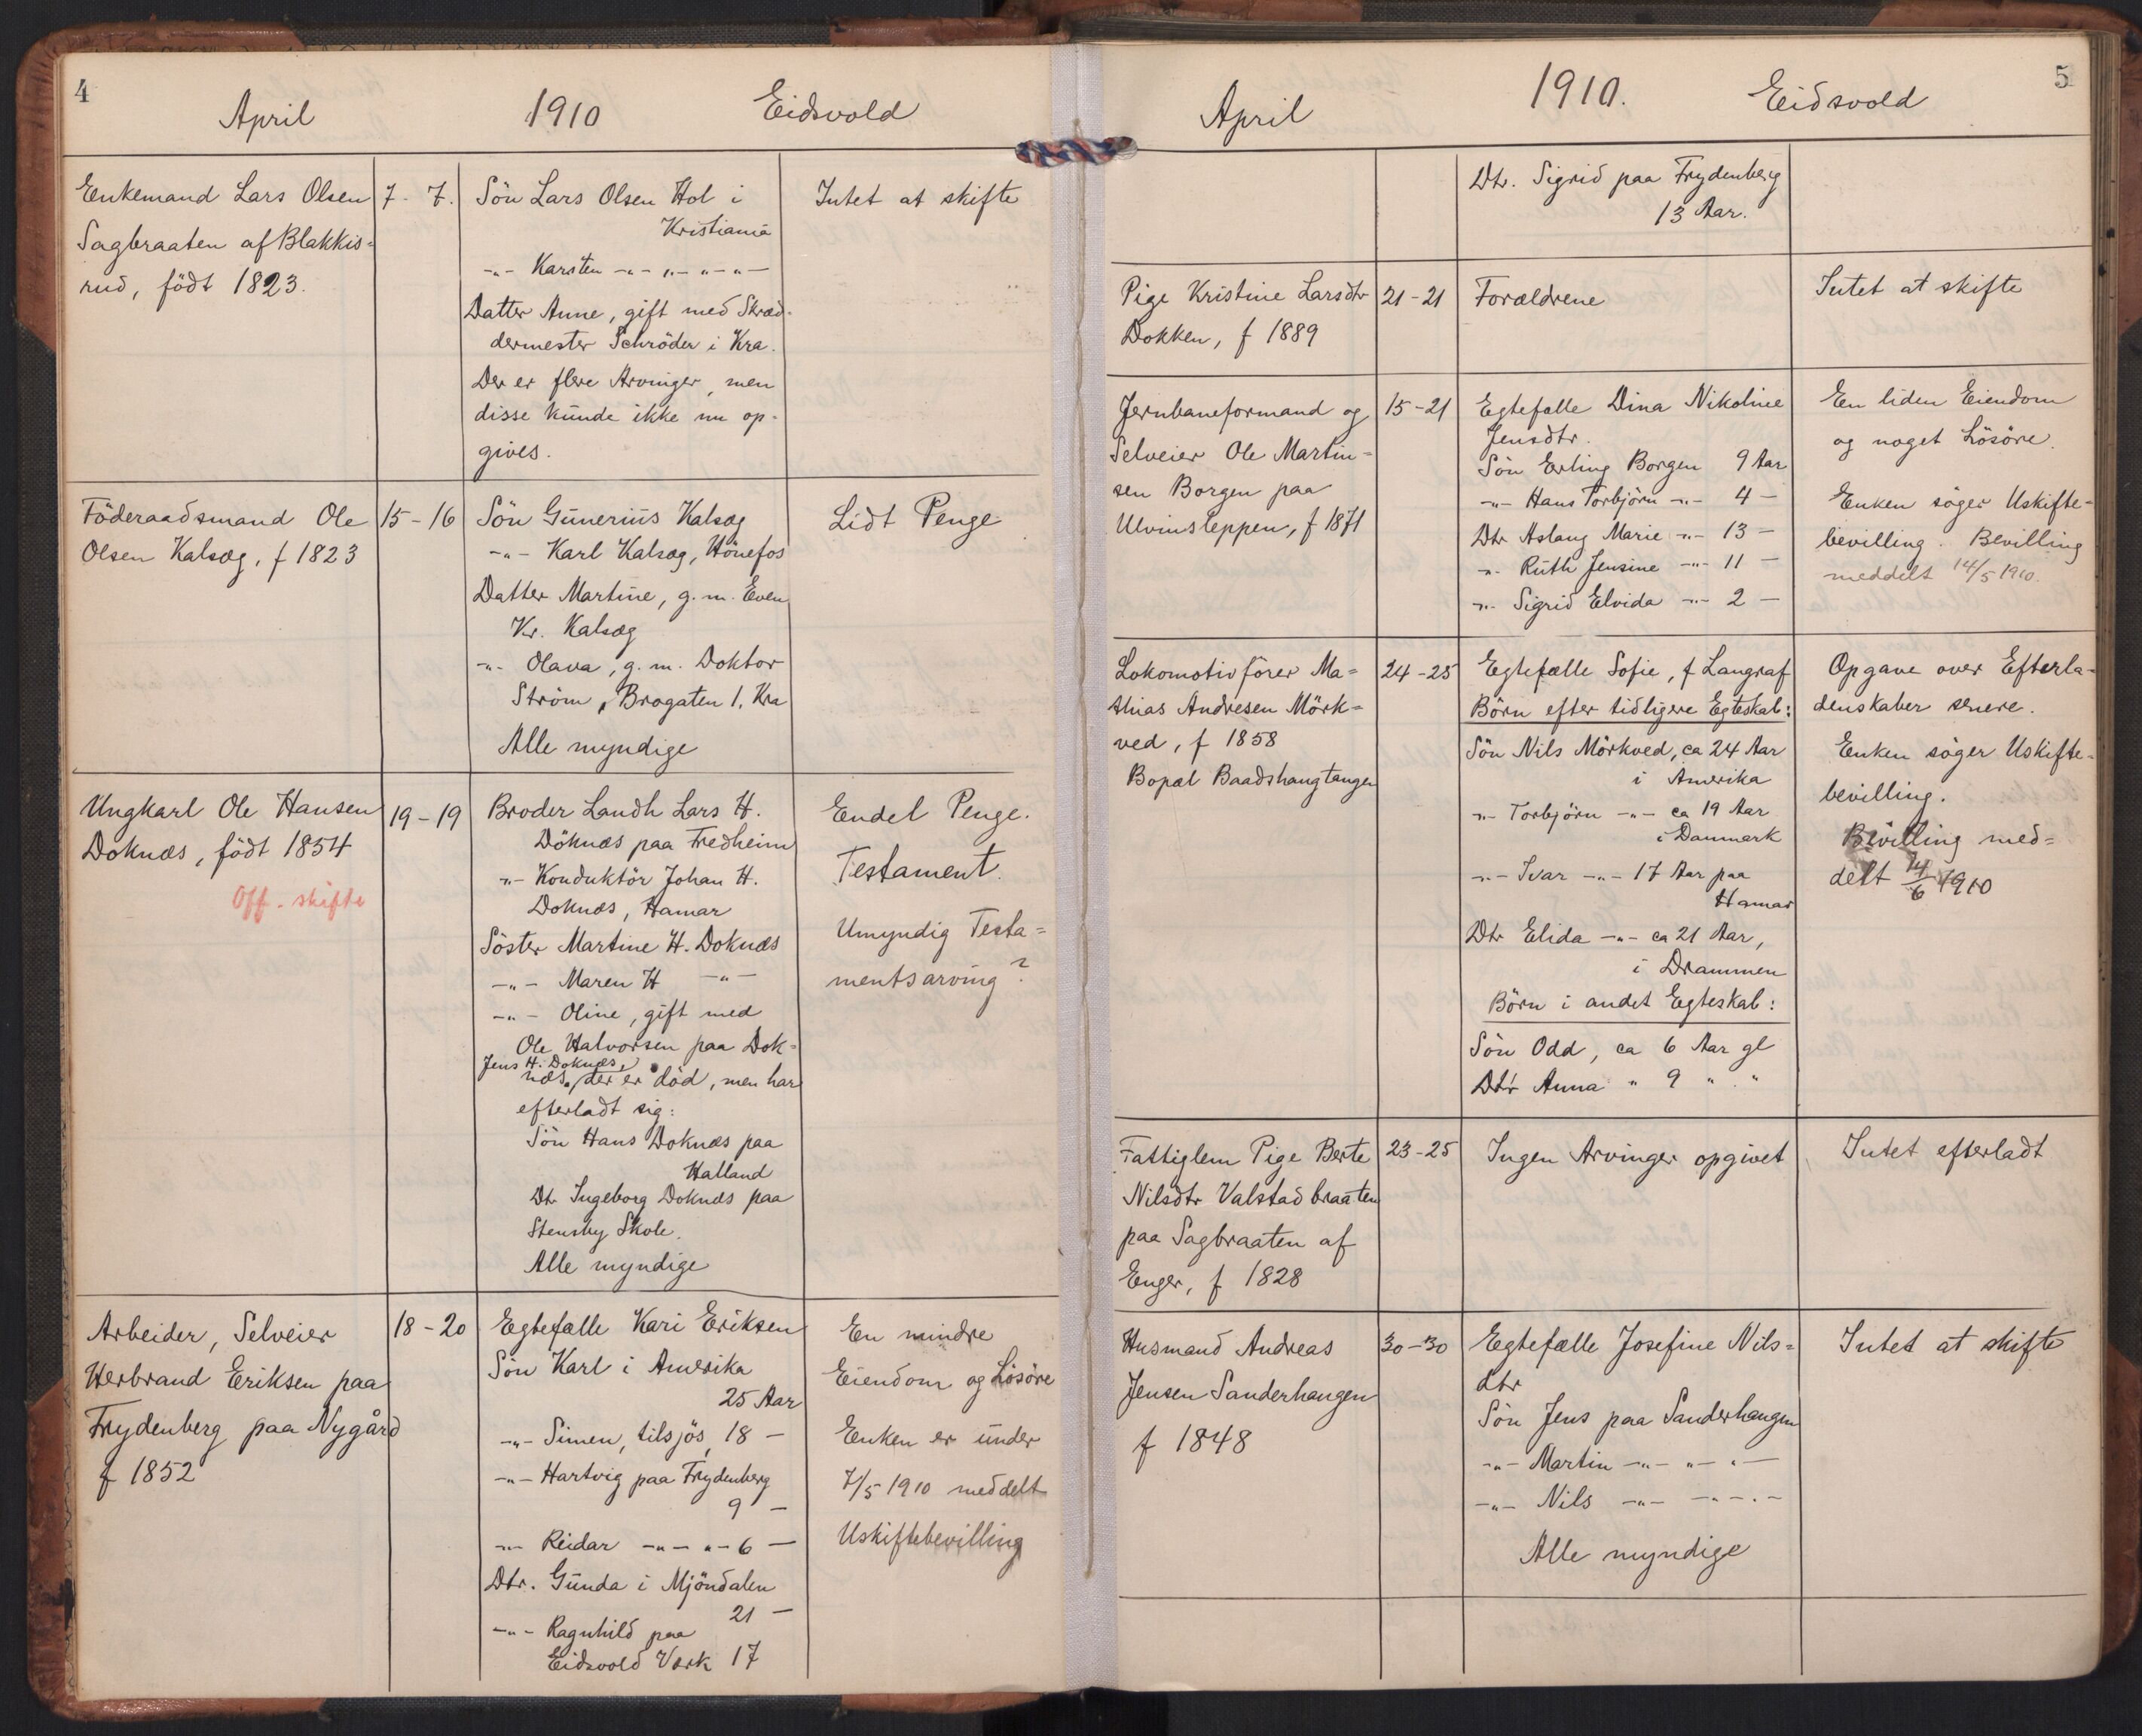 4
April 1910 Eidsvold
Enkemand Lars Olsen
Sagbraaten af Blakkis=
rud, födt 1823.
7 - 7.
Sön Lars Olsen Hol i
Kristiania
-„- Karsten -„- „- „- „-
Datter Anne, gift med Skræd-
dermester Schröder i Kra.
Der er flere Arvinger, men
disse kunde ikke nu op-
gives.
Intet at skifte
Föderaadsmand Ole
Olsen Kalsæg, f 1823
15 - 16
Sön Gunerius Kalsæg
-„- Karl Kalsæg, Hönefos
Datter Martine, g. m. Even
Kr. Kalsæg
-„- Olava, g. m. Doktor
Ström, Brogaten 1, Kra
Alle myndige
Lidt Penge
Ungkarl Ole Hansen
Doknæs, födt 1854
Off. skifte
19 - 19
Broder Landh Lars H.
Döknæs paa Fredheim
-„- Konduktör Johan H.
Doknæs, Hamar
Söster Martine H. Doknæs
-„- Maren H -„-
-„- Oline, gift med
Ole Halvorsen paa Dok=
Jens H. Doknæs,
næs, der er död, men har
efterladt sig:
Sön Hans Doknæs paa
Halland
Dt. Ingeborg Doknæs paa
Stensby Skole.
Alle myndige
Endel Penge.
Testament.
Umyndig Testa=
mentsarving?
Arbeider, Selveier
Herbrand Eriksen paa
Frydenberg paa Nygård
f 1852
18 - 20
Egtefælle Kari Eriksen
Sön Karl i Amerika
25 Aar
-„- Simen, tilsjös, 18 -
-„- Hartvig paa Frydenberg
9 -
-„- Reidar -„- „- 6 -
Dtr. Gunda i Mjöndalen
21 -
-„- Ragnhild paa
Eidsvold Værk 17
En mindre
Eiendom og Lösöre
Enken er under
7/5 1910 meddelt
Uskiftebevilling
5
April 1910. Eidsvold
Dtr. Sigrid paa Frydenberg
13 Aar.
Pige Kristine Larsdtr
Dokken, f 1889
21 - 21
Forældrene
Intet at skifte
Jernbaneformand og
Selveier Ole Martin=
sen Borgen paa
Ulvinsleppen, f 1871
15 - 21
Egtefælle Dina Nikoline
Jensdtr.
Sön Erling Borgen 9 Aar
-„- Hans Torbjörn -„- 4 -
Dtr Aslaug Marie -„- 13 -
-„- Ruth Jensine -„- 11 -
-„- Sigrid Elvida -„- 2 -
En liden Eiendom
og noget Lösöre.
Enken söger Uskifte-
bevilling. Bevilling
meddelt 14/5 1910.
Lokomotivförer Ma=
thias Andresen Mörk=
ved, f 1858
Bopæl Baadshaugtangen
24 - 25
Egtefælle Sofie, f Langraf
Börn efter tidligere Egteskab:
Sön Nils Mörkved, ca 24 Aar
i Amerika
-„- Torbjörn -„- ca 19 Aar
i Danmark
-„- Ivar -„- 17 Aar paa
Hamar
Dtr Elida -„- ca 21 Aar,
i Drammen
Börn i andet Egteskab:
Sön Odd, ca 6 Aar gl
Dtr Anna „ 9 „ „
Opgave over Efterla-
denskaber senere.
Enken söger Uskifte-
bevilling.
Bevilling med=
delt 14/6 1910
Fattiglem Pige Berte
Nilsdtr Valstadbraaten
paa Sagbraaten af
Enger, f 1828
23 - 25
Ingen Arvinger opgivet
Intet efterladt
Husmand Andreas
Jensen Sanderhaugen
f 1848
30 - 30
Egtefælle Josefine Nils=
dtr
Sön Jens paa Sanderhaugen
-„- Martin -„- „- „-
-„- Nils -„- -„-„-
Alle myndige
Intet at skifte